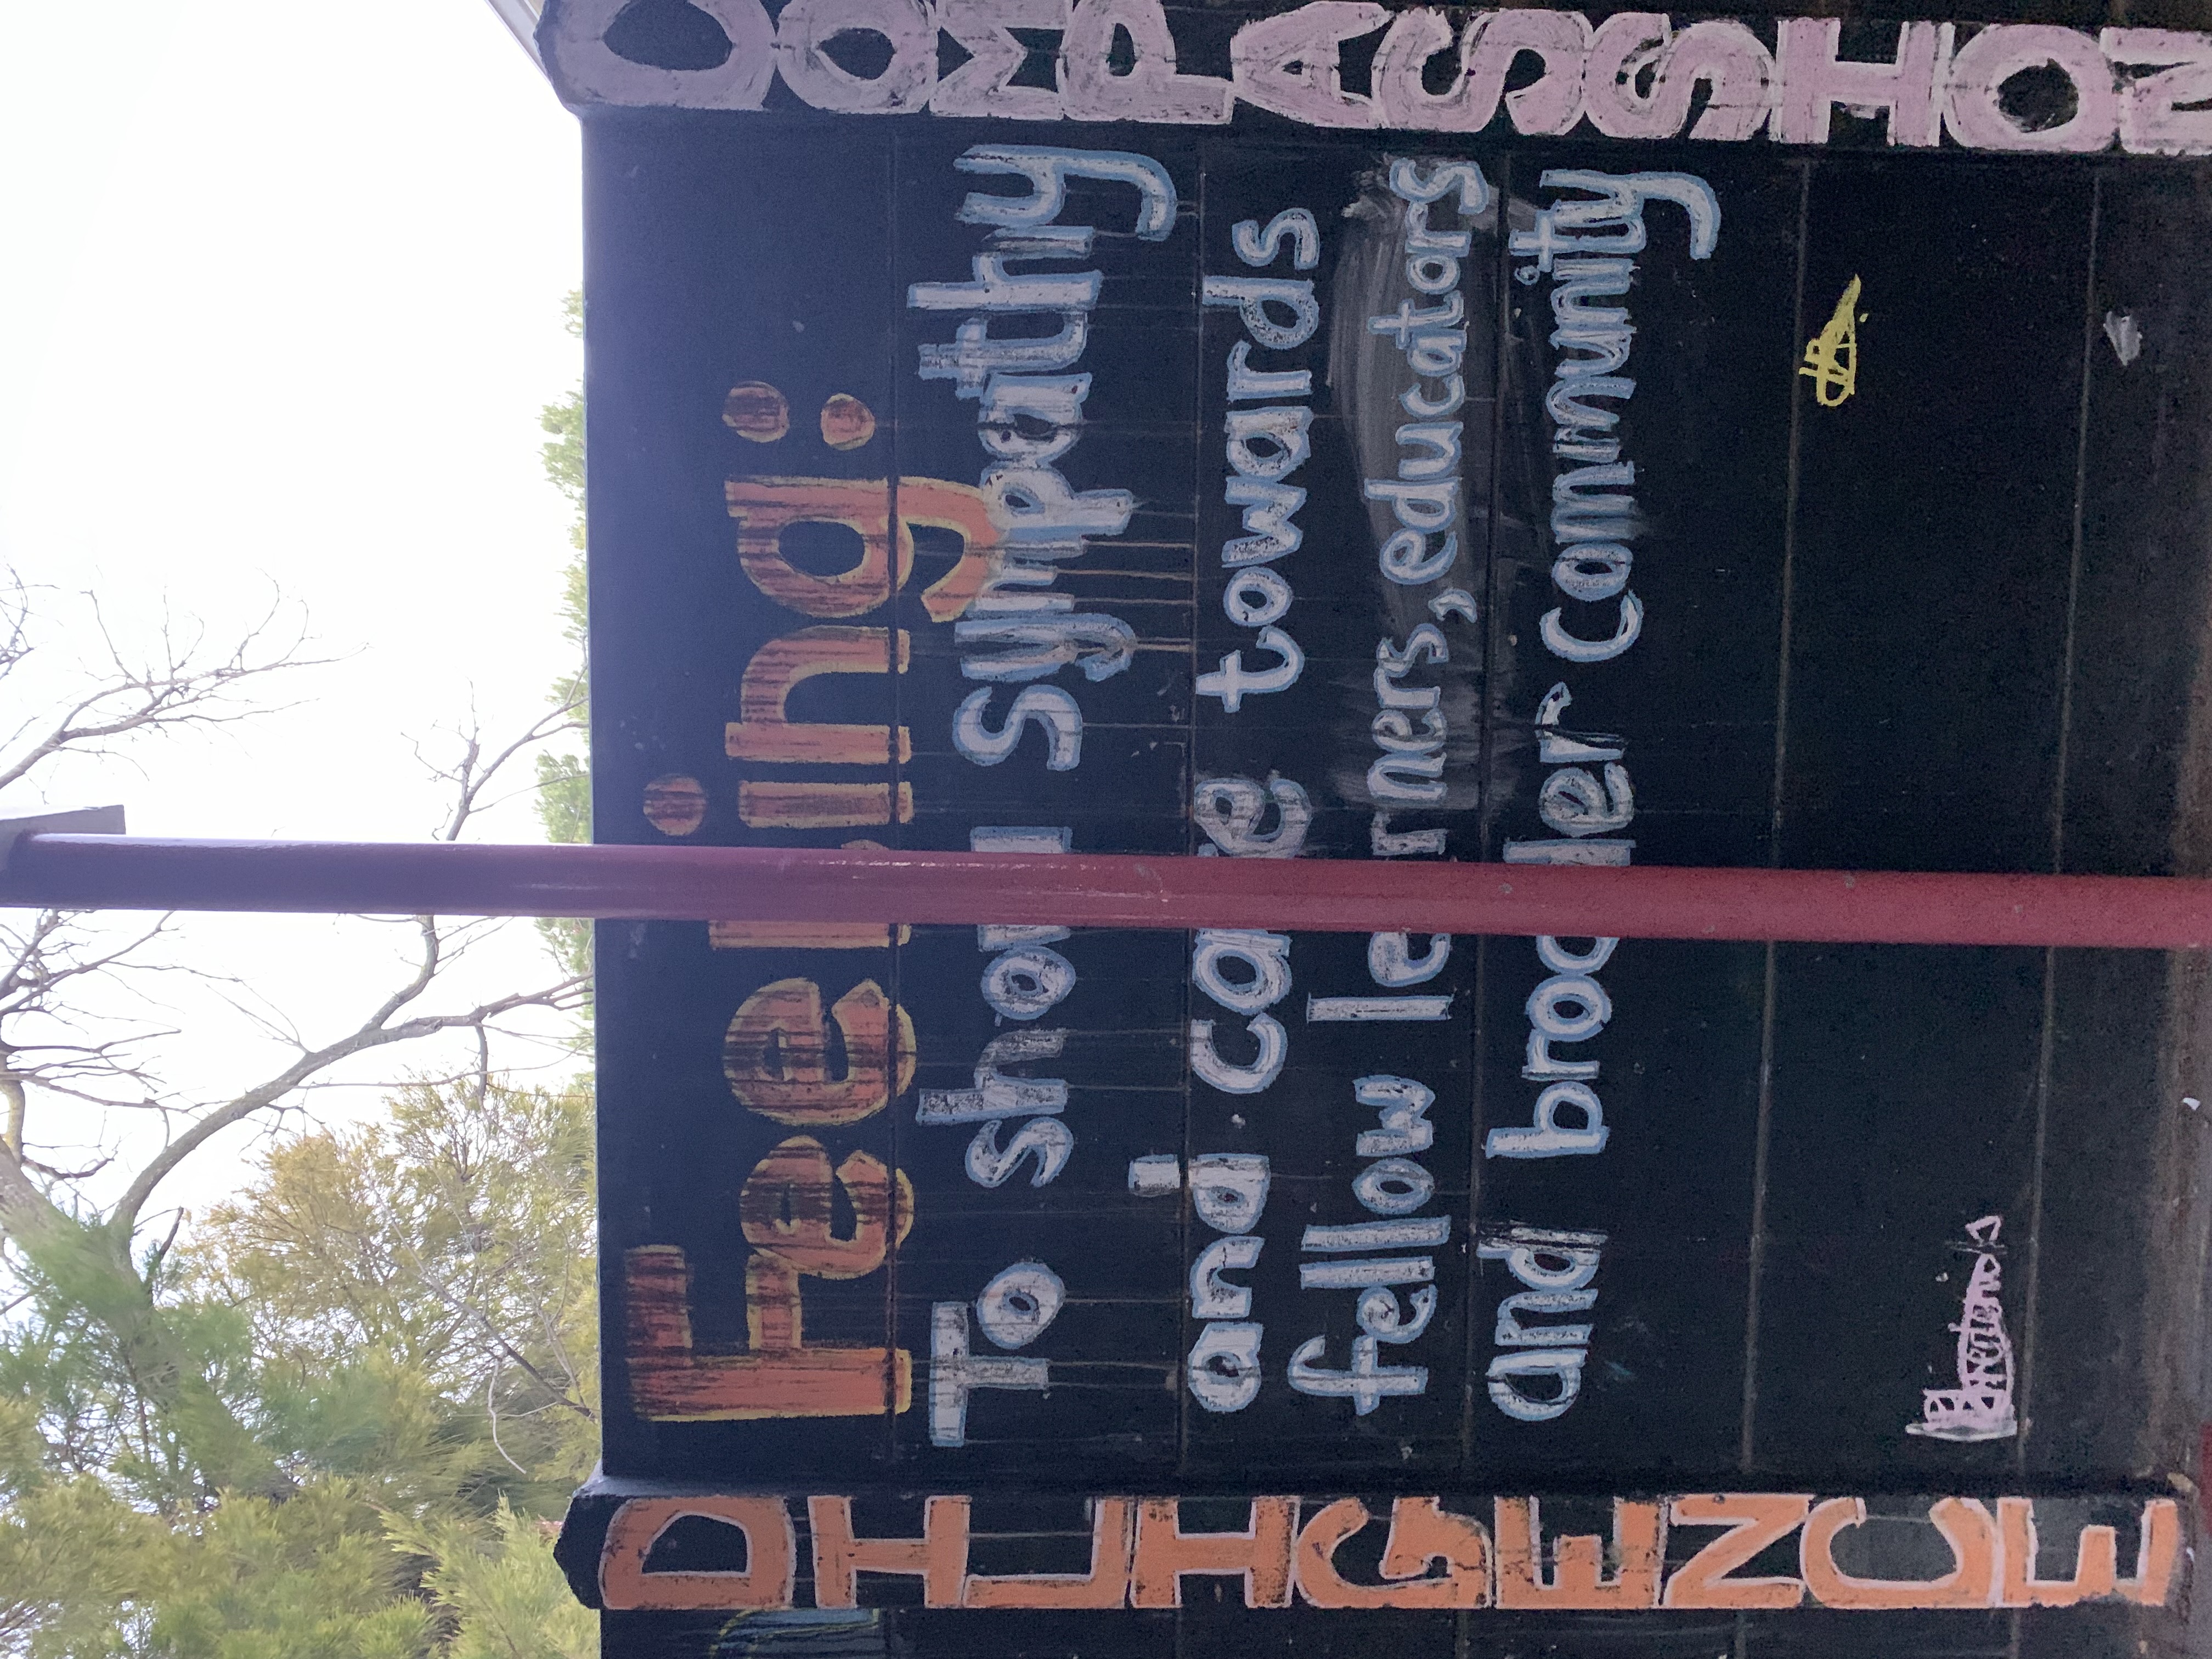 DILIGENCE
Feeling:
To show sympathy
and care towards
fellow learners, educators
and broader community
COMPASSION